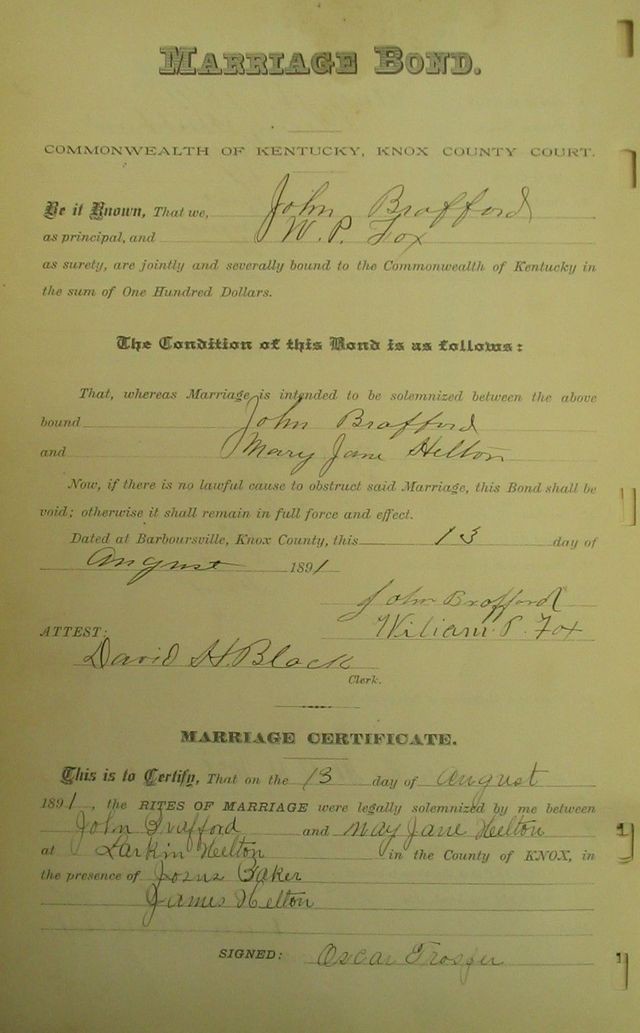 MARRIAGE BOND.
COMMONWEALTH OF KENTUCKY, KNOX COUNTY COURT.
Be it Known, That we, John Brafford
as principal, and W. P. Fox
as surety, are jointly and severally bound to the Commonwealth of Kentucky in
the sum of One Hundred Dollars.
The Condition of this Bond is as follows:
That, whereas Marriage is intended to be solemnized between the above
bound John Brafford
and Mary Jane Helton
Now, if there is no lawful cause to obstruct said Marriage, this Bond shall be
void; otherwise it shall remain in full force and effect.
Dated at Barboursville, Knox County, this 13 day of
August 1891
John Brafford
ATTEST: Wiliam. P. Fox
David H. Black
Clerk.
MARRIAGE CERTIFICATE.
This is to Certify, That on the 13 day of August
1891, the RITES OF MARRIAGE were legally solemnized by me between
John Brafford and May Jane Helton
at Larkin Helton in the County of KNOX, in
the presence of Baker
James Helton
SIGNED: Oscar